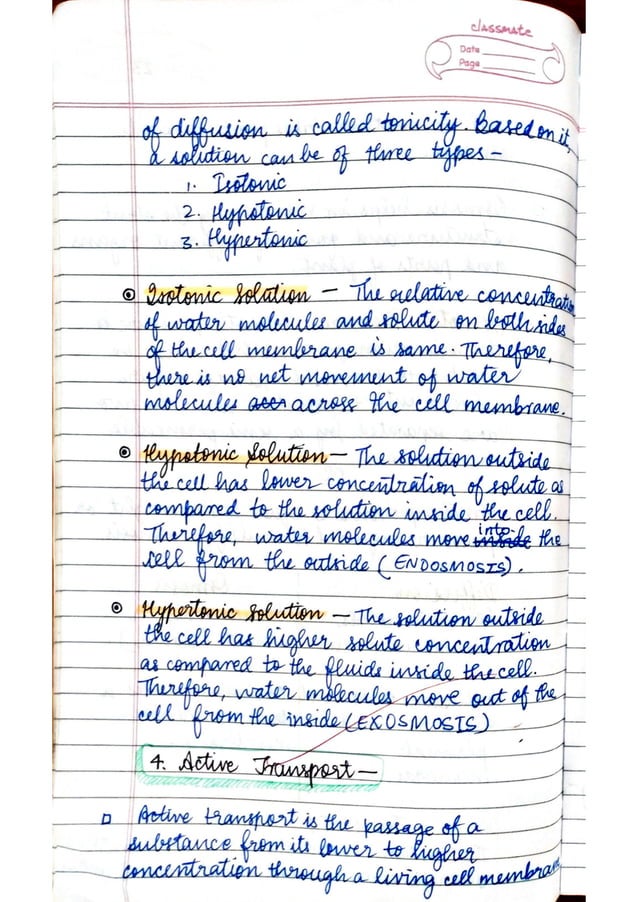 classmate
Date
Page
of diffusion is called tonicity. Based on it,
a solution can be of three types –
1. Isotonic
2. Hypotonic
3. Hypertonic
Isotonic Solution – The relative concentration
of water molecules and solute on both sides
of the cell membrane is same. Therefore,
there is no net movement of water
molecules across the cell membrane.
Hypotonic Solution – The solution outside
the cell has lower concentration of solute as
compared to the solution inside the cell.
Therefore, water molecules move into the
cell from the outside (ENDOSMOSIS).
Hypertonic Solution – The solution outside
the cell has higher solute concentration
as compared to the fluids inside the cell.
Therefore, water molecules move out of the
cell from the inside (EXOSMOSIS)
4. Active Transport –
Active transport is the passage of a
substance from its lower to higher
concentration through a living cell membrane